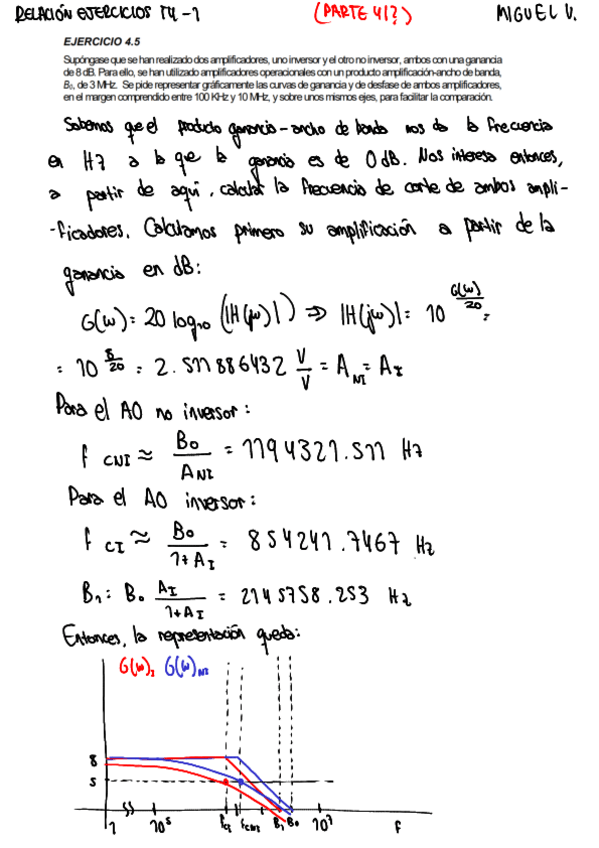 RELACIÓN EJERCICIOS T4-1 (PARTE 4/?) MIGUEL V.
EJERCICIO 4.5
Supóngase que se han realizado dos amplificadores, uno inversor y el otro no inversor, ambos con una ganancia
de 8 dB. Para ello, se han utilizado amplificadores operacionales con un producto amplificación-ancho de banda,
B₀, de 3 MHz. Se pide representar gráficamente las curvas de ganancia y de desfase de ambos amplificadores,
en el margen comprendido entre 100 KHz y 10 MHz, y sobre unos mismos ejes, para facilitar la comparación.
Sabemos que el producto ganancia-ancho de banda nos da la frecuencia
en Hz a la que la ganancia es de 0 dB. Nos interesa entonces,
a partir de aquí, calcular la frecuencia de corte de ambos ampli-
-ficadores. Calculamos primero su amplificación a partir de la
ganancia en dB:
G(w) = 20 log₁₀ (|H(jw)|) ⇒ |H(jw)| = 10^(G(w)/20) =
= 10^(8/20) = 2.511886432 V/V = A_NI = A_I
Para el AO no inversor:
f_CNI ≈ B₀/A_NI = 1194321.511 Hz
Para el AO inversor:
f_CI ≈ B₀/(1+A_I) = 854241.7467 Hz
B₁ = B₀ A_I/(1+A_I) = 2145758.253 Hz
Entonces, la representación queda:
G(w)_I G(w)_NI
8
5
1 10⁵ f_CI f_CNI B₁ B₀ 10⁷ f